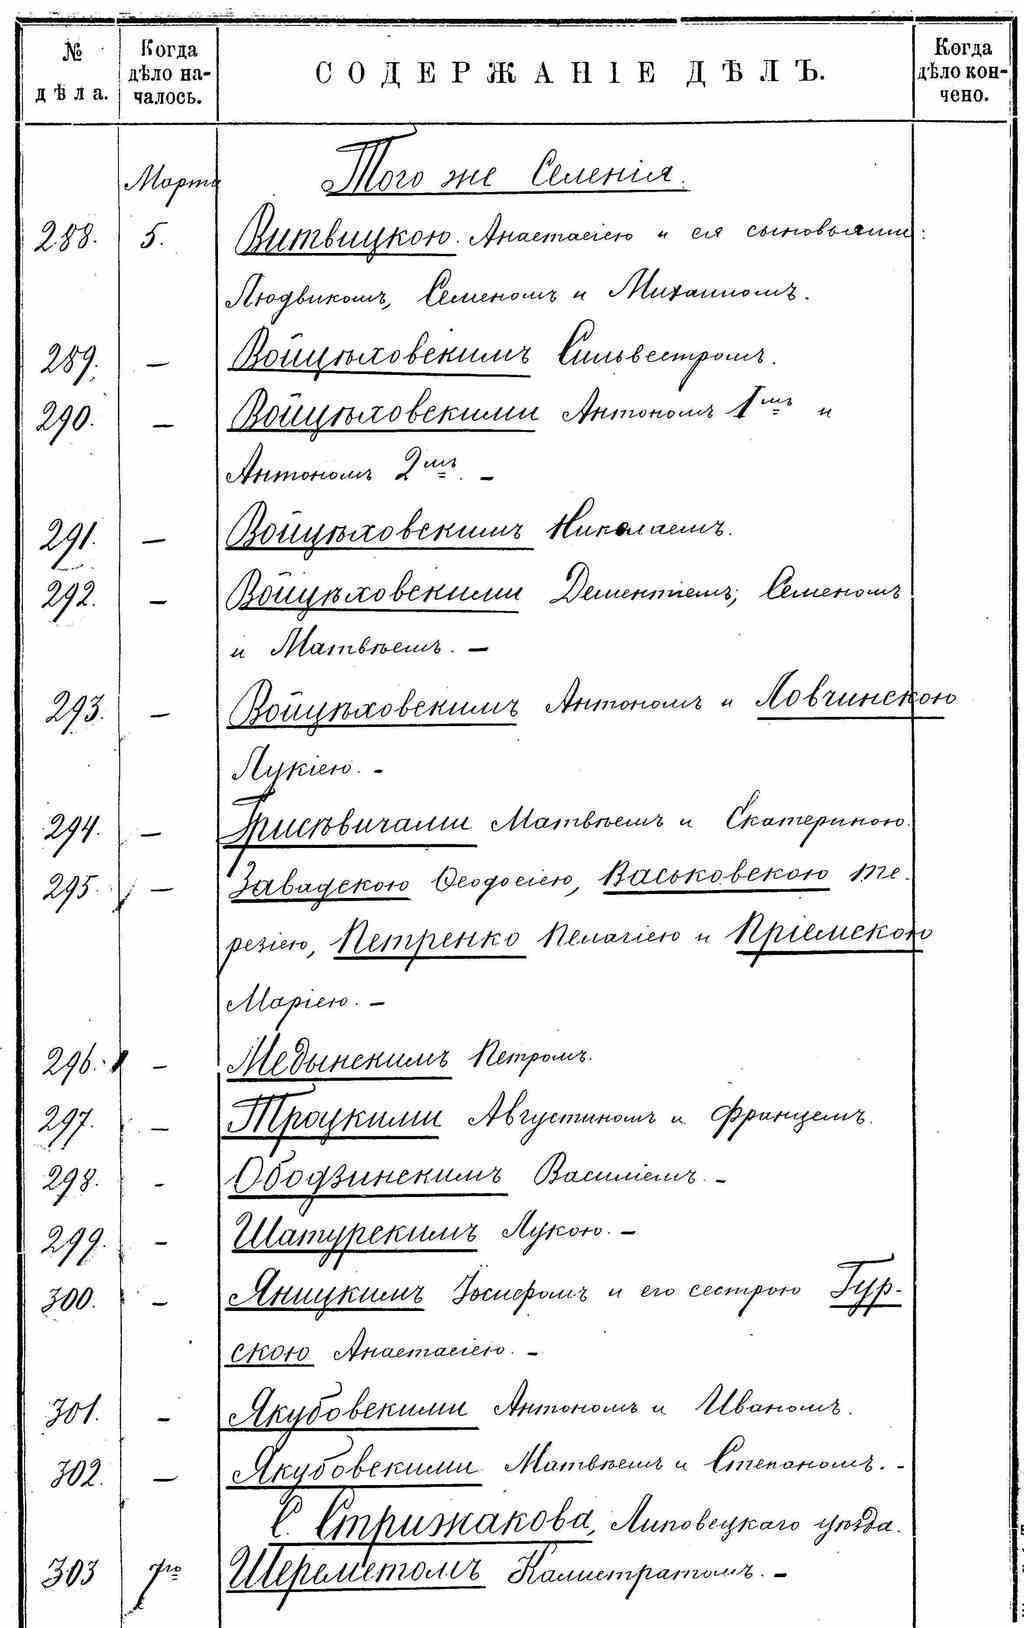 № дѣла. Когда дѣло началось. СОДЕРЖАНІЕ ДѢЛЪ. Когда дѣло кончено.
Марта Того же Селенія.
288. 5. Витвицкою. Анастасіею и ея сыновьями:
Людвикомъ, Семеномъ и Михаиломъ.
289. — Войцѣховскимъ Сильвестромъ.
290. — Войцѣховскими Антономъ 1мъ и
Антономъ 2мъ. —
291. — Войцѣховскимъ Николаемъ.
292. — Войцѣховскими Дементіемъ, Семеномъ
и Матвѣемъ. —
293. — Войцѣховскимъ Антономъ и Ловчинскою
Лукіею. —
294. — Грисѣвичами Матвѣемъ и Екатериною.
295. — Завадскою Ѳеодосіею, Васьковскою Те-
резіею, Петренко Пелагіею и Пріемскою
Маріею. —
296. — Медынскимъ Петромъ.
297. — Троцкими Августиномъ и Францемъ.
298. — Ободзинскимъ Василіемъ. —
299. — Шатурскимъ Лукою. —
300. — Яницкимъ Іосифомъ и его сестрою Гур-
скою Анастасіею. —
301. — Якубовскими Антономъ и Иваномъ.
302. — Якубовскими Матвѣемъ и Степаномъ. —
С. Стрижакова, Липовецкаго уѣзда.
303 7го Шереметомъ Калистратомъ. —